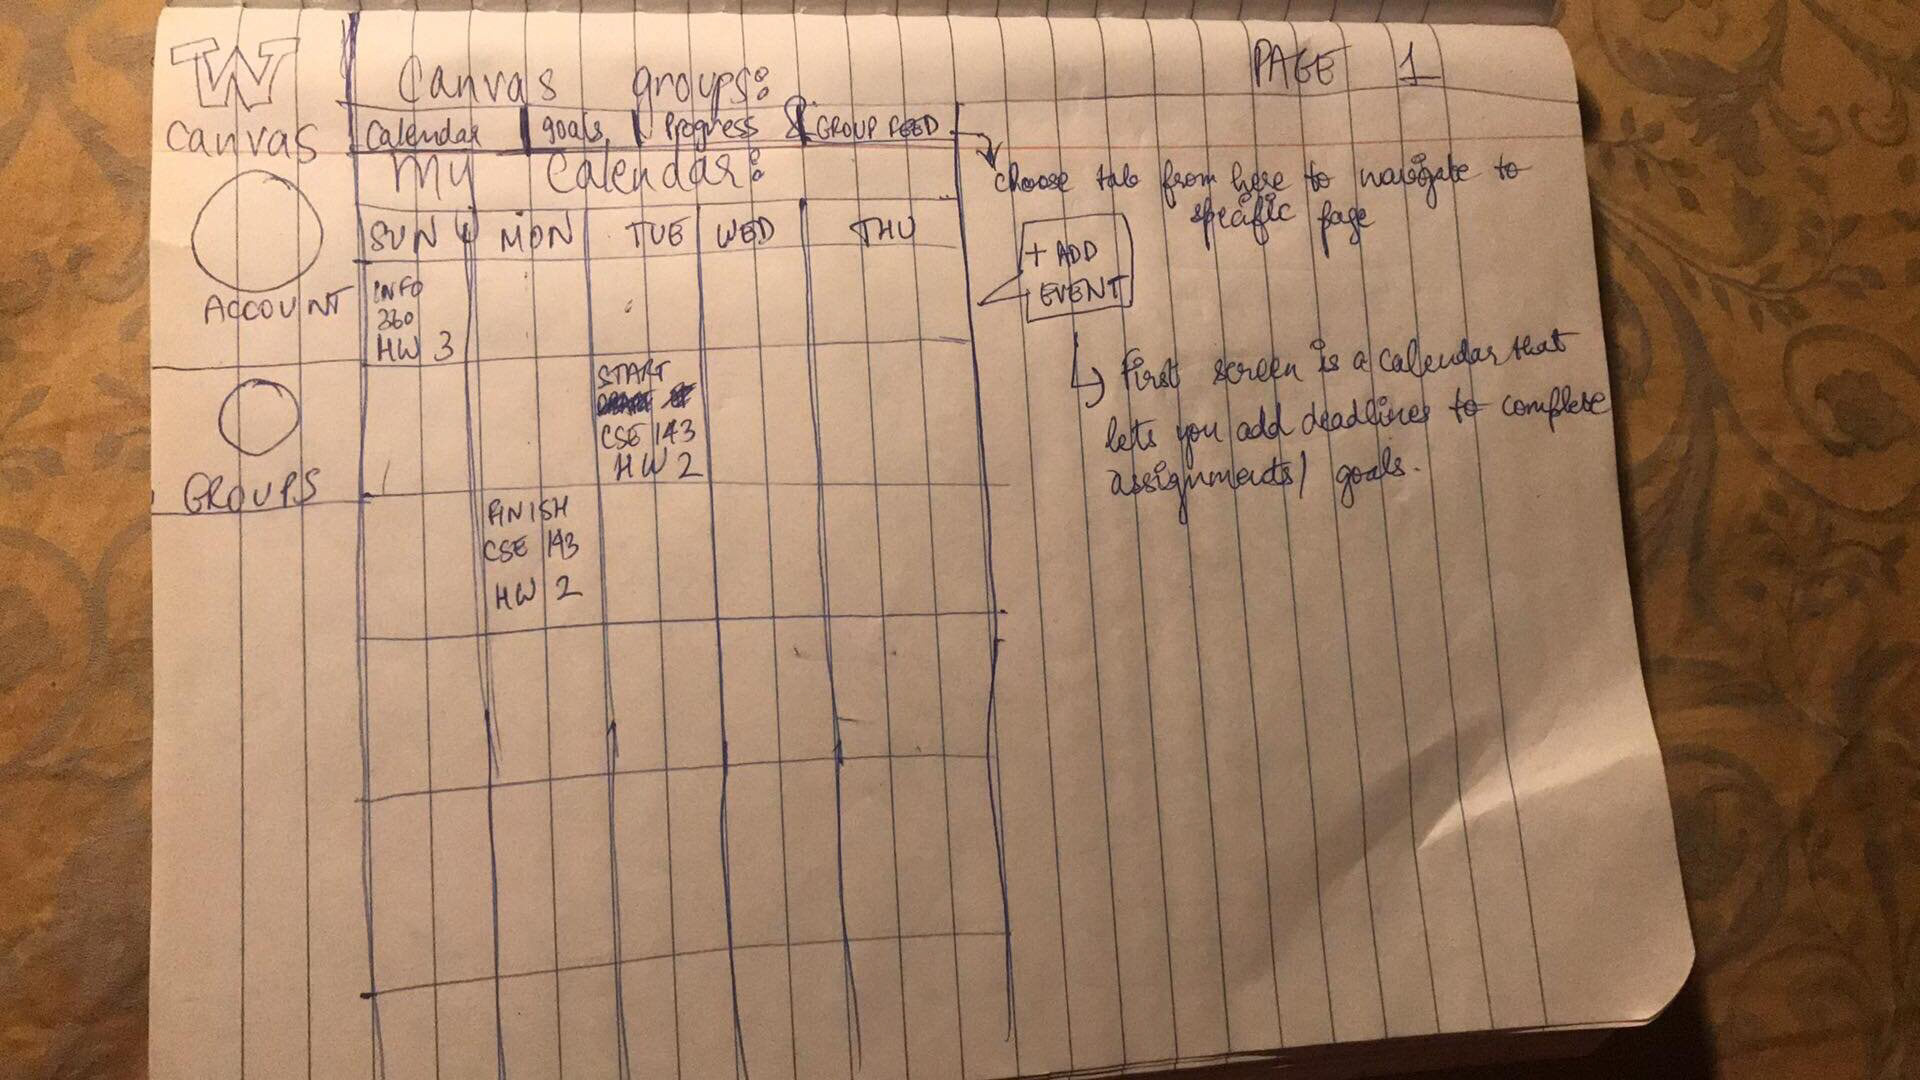 W
Canvas
ACCOUNT
GROUPS
Canvas groups:
Calendar goals, Progress & GROUP FEED
My Calendar:
SUN MON TUE WED THU
INFO
360
HW 3
START
CSE 143
HW 2
FINISH
CSE 143
HW 2
PAGE 1
choose tab from here to navigate to
specific page
+ ADD
EVENT
First screen is a calendar that
lets you add deadlines to complete
assignments/ goals.